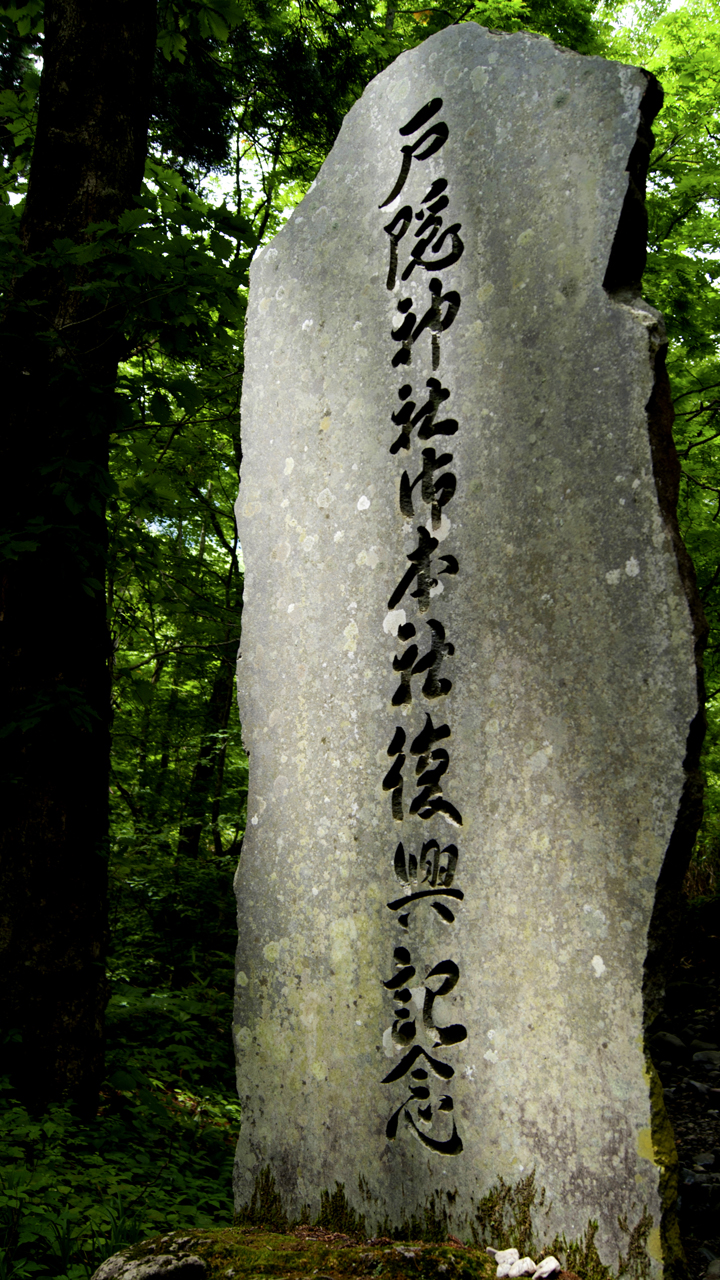 戸隠神社御本社復興記念